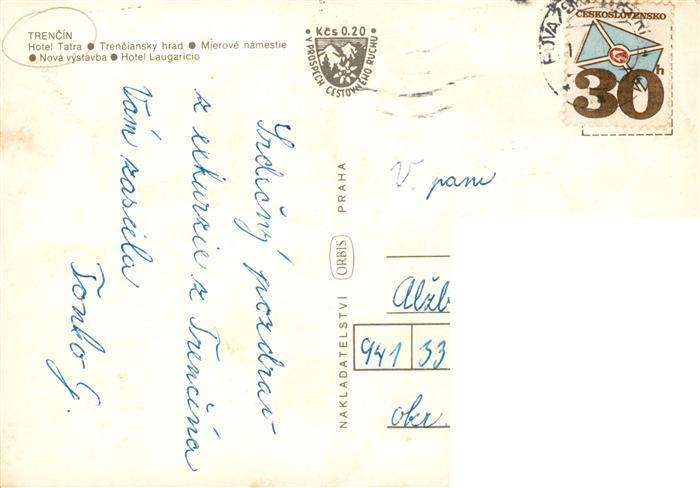 TRENČÍN
Hotel Tatra ● Trenčiansky hrad ● Mierové námestie
● Nová výstavba ● Hotel Laugaricio
Kčs 0.20
V PROSPECH CESTOVNÉHO RUCHU
ČESKOSLOVENSKO
30h
Srdečný pozdrav
z exkurzie z Trenčína
Vám zasiela
Tonko G.
NAKLADATELSTVÍ ORBIS PRAHA
V. pani
Alžb
941 33
okr.